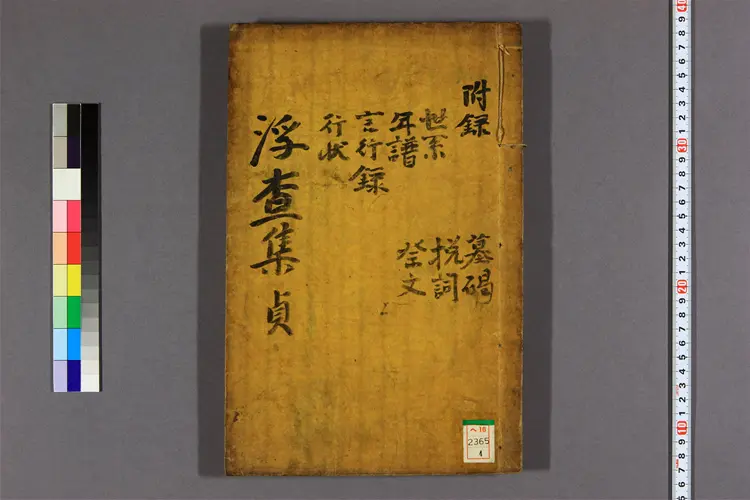 附録
世系
年譜
言行録
行狀
墓碣
挽詞
祭文
浮査集 貞
ヘ16
2365
4
40
9
8
7
6
5
4
3
2
1
30
9
8
7
6
5
4
3
2
1
20
9
8
7
6
5
4
3
2
1
10
9
8